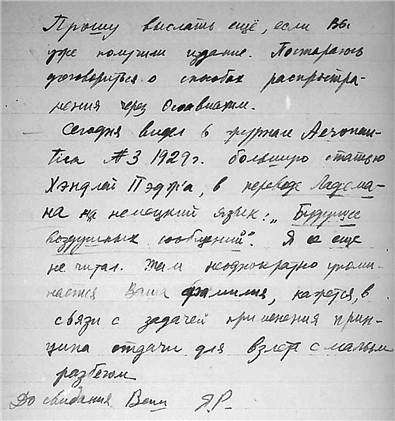 Прошу выслать ещё, если Вы
уже получили издание. Постараюсь
договориться о способах распростра-
нения через Осоавиахим.
Сегодня видел в журнале Аегонаи-
tica №3 1929г. большую статью
Хэндлей Пэджа в переводе
на на немецкий язык: „Будущее
воздушных сообщений". Я её еще
не читал. Там неоднократно упоми-
нается Ваша фамилия, кажется, в
связи с задачей применения прин-
ципа отдачи для взлета с малым
разбегом
До свидания Ваш Я.Р.